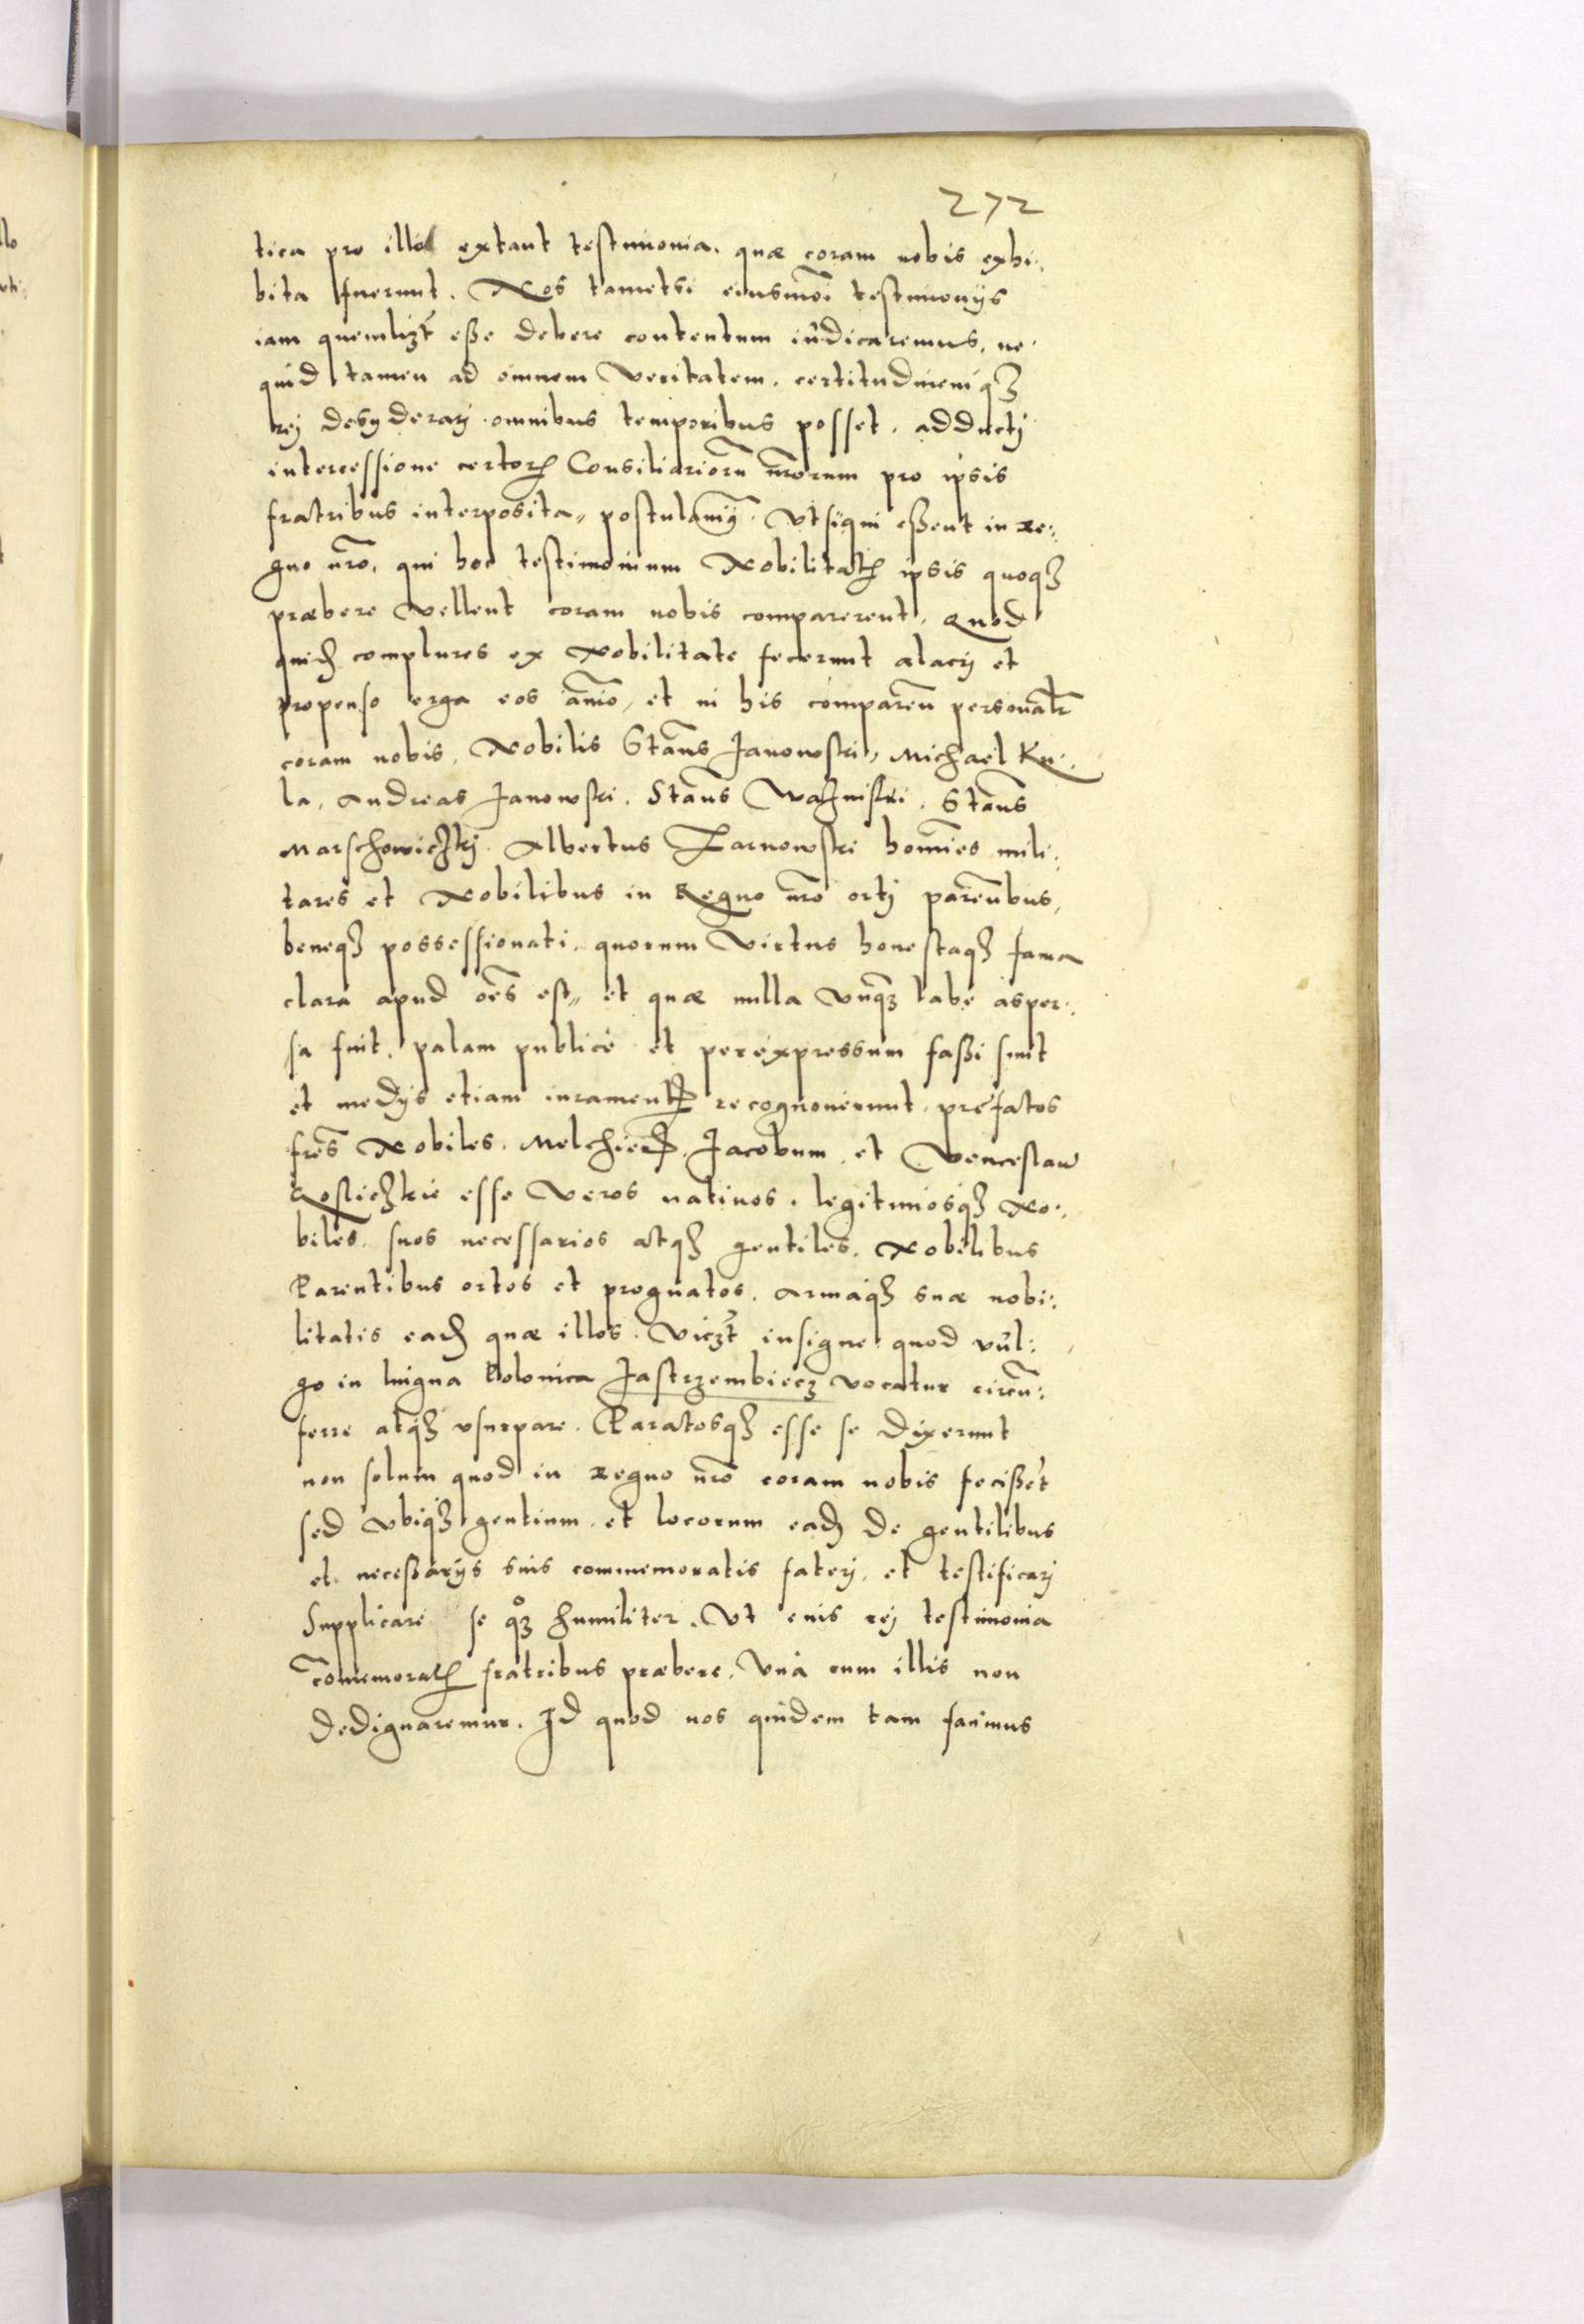 272
tica pro illis extant testimonia. quæ coram nobis exhi:
bita fuerunt. Nos tametsi eiusmõi testimonijs
iam quemlizt eße debere contentum iudicaremus, ne
quid tamen ad omnem veritatem. certitudinemqȝ
rej desyderarj omnibus temporibus posset. adductj
intercessione certoꝝ Consiliarioru nr̃orum pro ipsis
fratribus interposita, postulauimꝰ. Vt siqui eßent in re:
gno nr̃o, qui hoc testimonium Nobilitatis ipsis quoqȝ
præbere vellent coram nobis comparerent, Quod
quidem complures ex Nobilitate fecerunt alacrj et
propenso erga eos aĩmo, et in his comparẽn personalr̃
coram nobis, Nobilis Stãns Janowski, Michael Ku:
la, Andreas Janowski. Stãns Stãns
Albertus Zarnowski homĩes mili:
tares et Nobilibus in Regno nr̃o ortj parẽnbus,
beneqȝ possessionati. quorum Virtus honestaqȝ fama
clara apud oẽs est, et quæ nulla vnqȝ labe asper:
sa fuit, palam publice et per expressum faßi sunt
et medijs etiam iuramentis recognouerunt, prefatos
fr̃es Nobiles. Melchiorem, Jacobum, et Venceslaũ
esse Veros natiuos. legitimosqȝ No:
biles. suos necessarios atqȝ gentiles. Nobilibus
Parentibus ortos et prognatos. Armaqȝ suæ nobi:
litatis eadem quæ illos. Viczt insigne quod vul:
go in lingua Polonica Jastrzembiecz vocatur circũ:
ferre atqȝ vsurpare. Paratosqȝ esse se dixerunt
non solum quod in regno nr̃o coram nobis fecißet
sed vbiqȝ gentium. et locorum eadem de gentilibus
et neceßarijs suis commemoratis faterj, et testificarj
Supplicare se qȝ humiliter. Vt euis rej testimonia
cõmemoratis fratribus præbere. Vna cum illis non
dedignaremur. Id quod nos quidem tam facimus